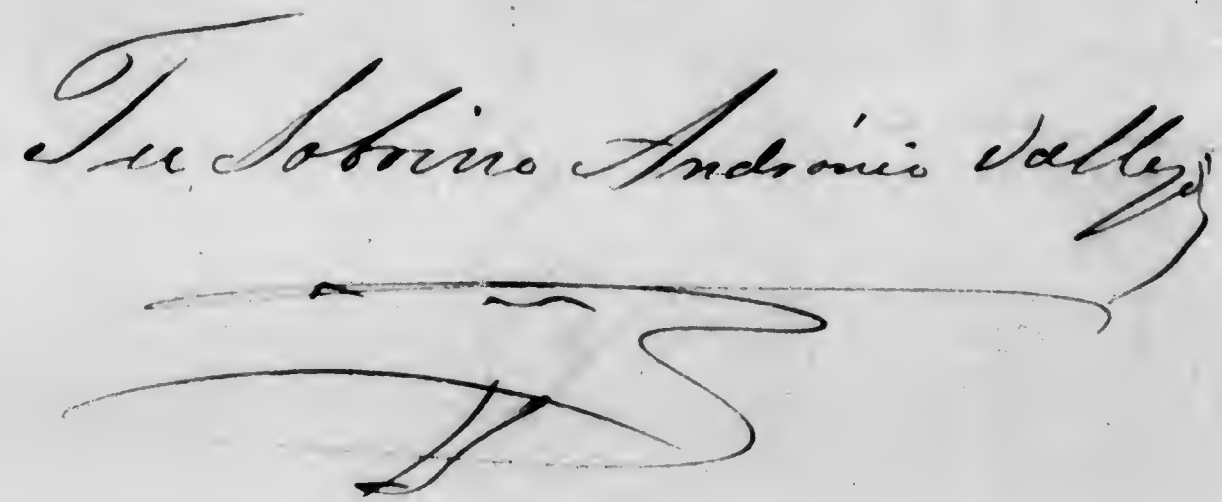 Tu Sobrino Andrónico Vallejo